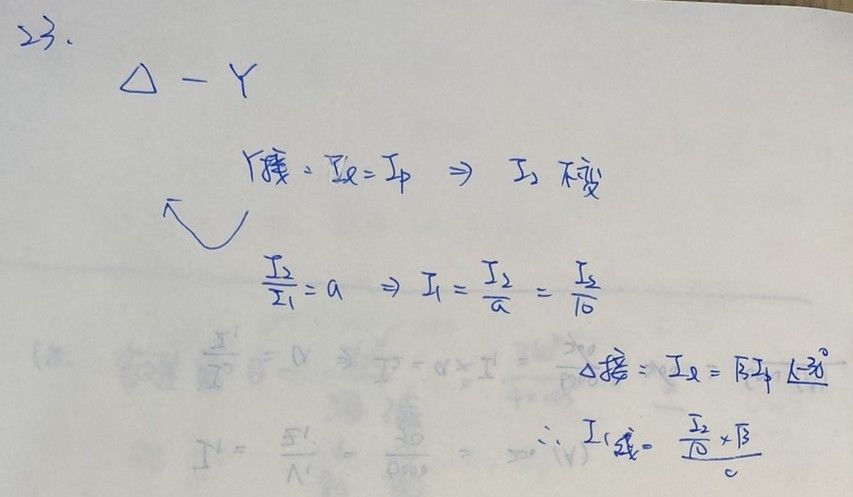 23.
△ － Y
Y接 = Iℓ = Ip ⇒ I₂ 不變
I₂/I₁ = a ⇒ I₁ = I₂/a = I₂/10
△接 = Iℓ = √3 Ip ∠-30°
∴ I₁線 = I₂/10 × √3